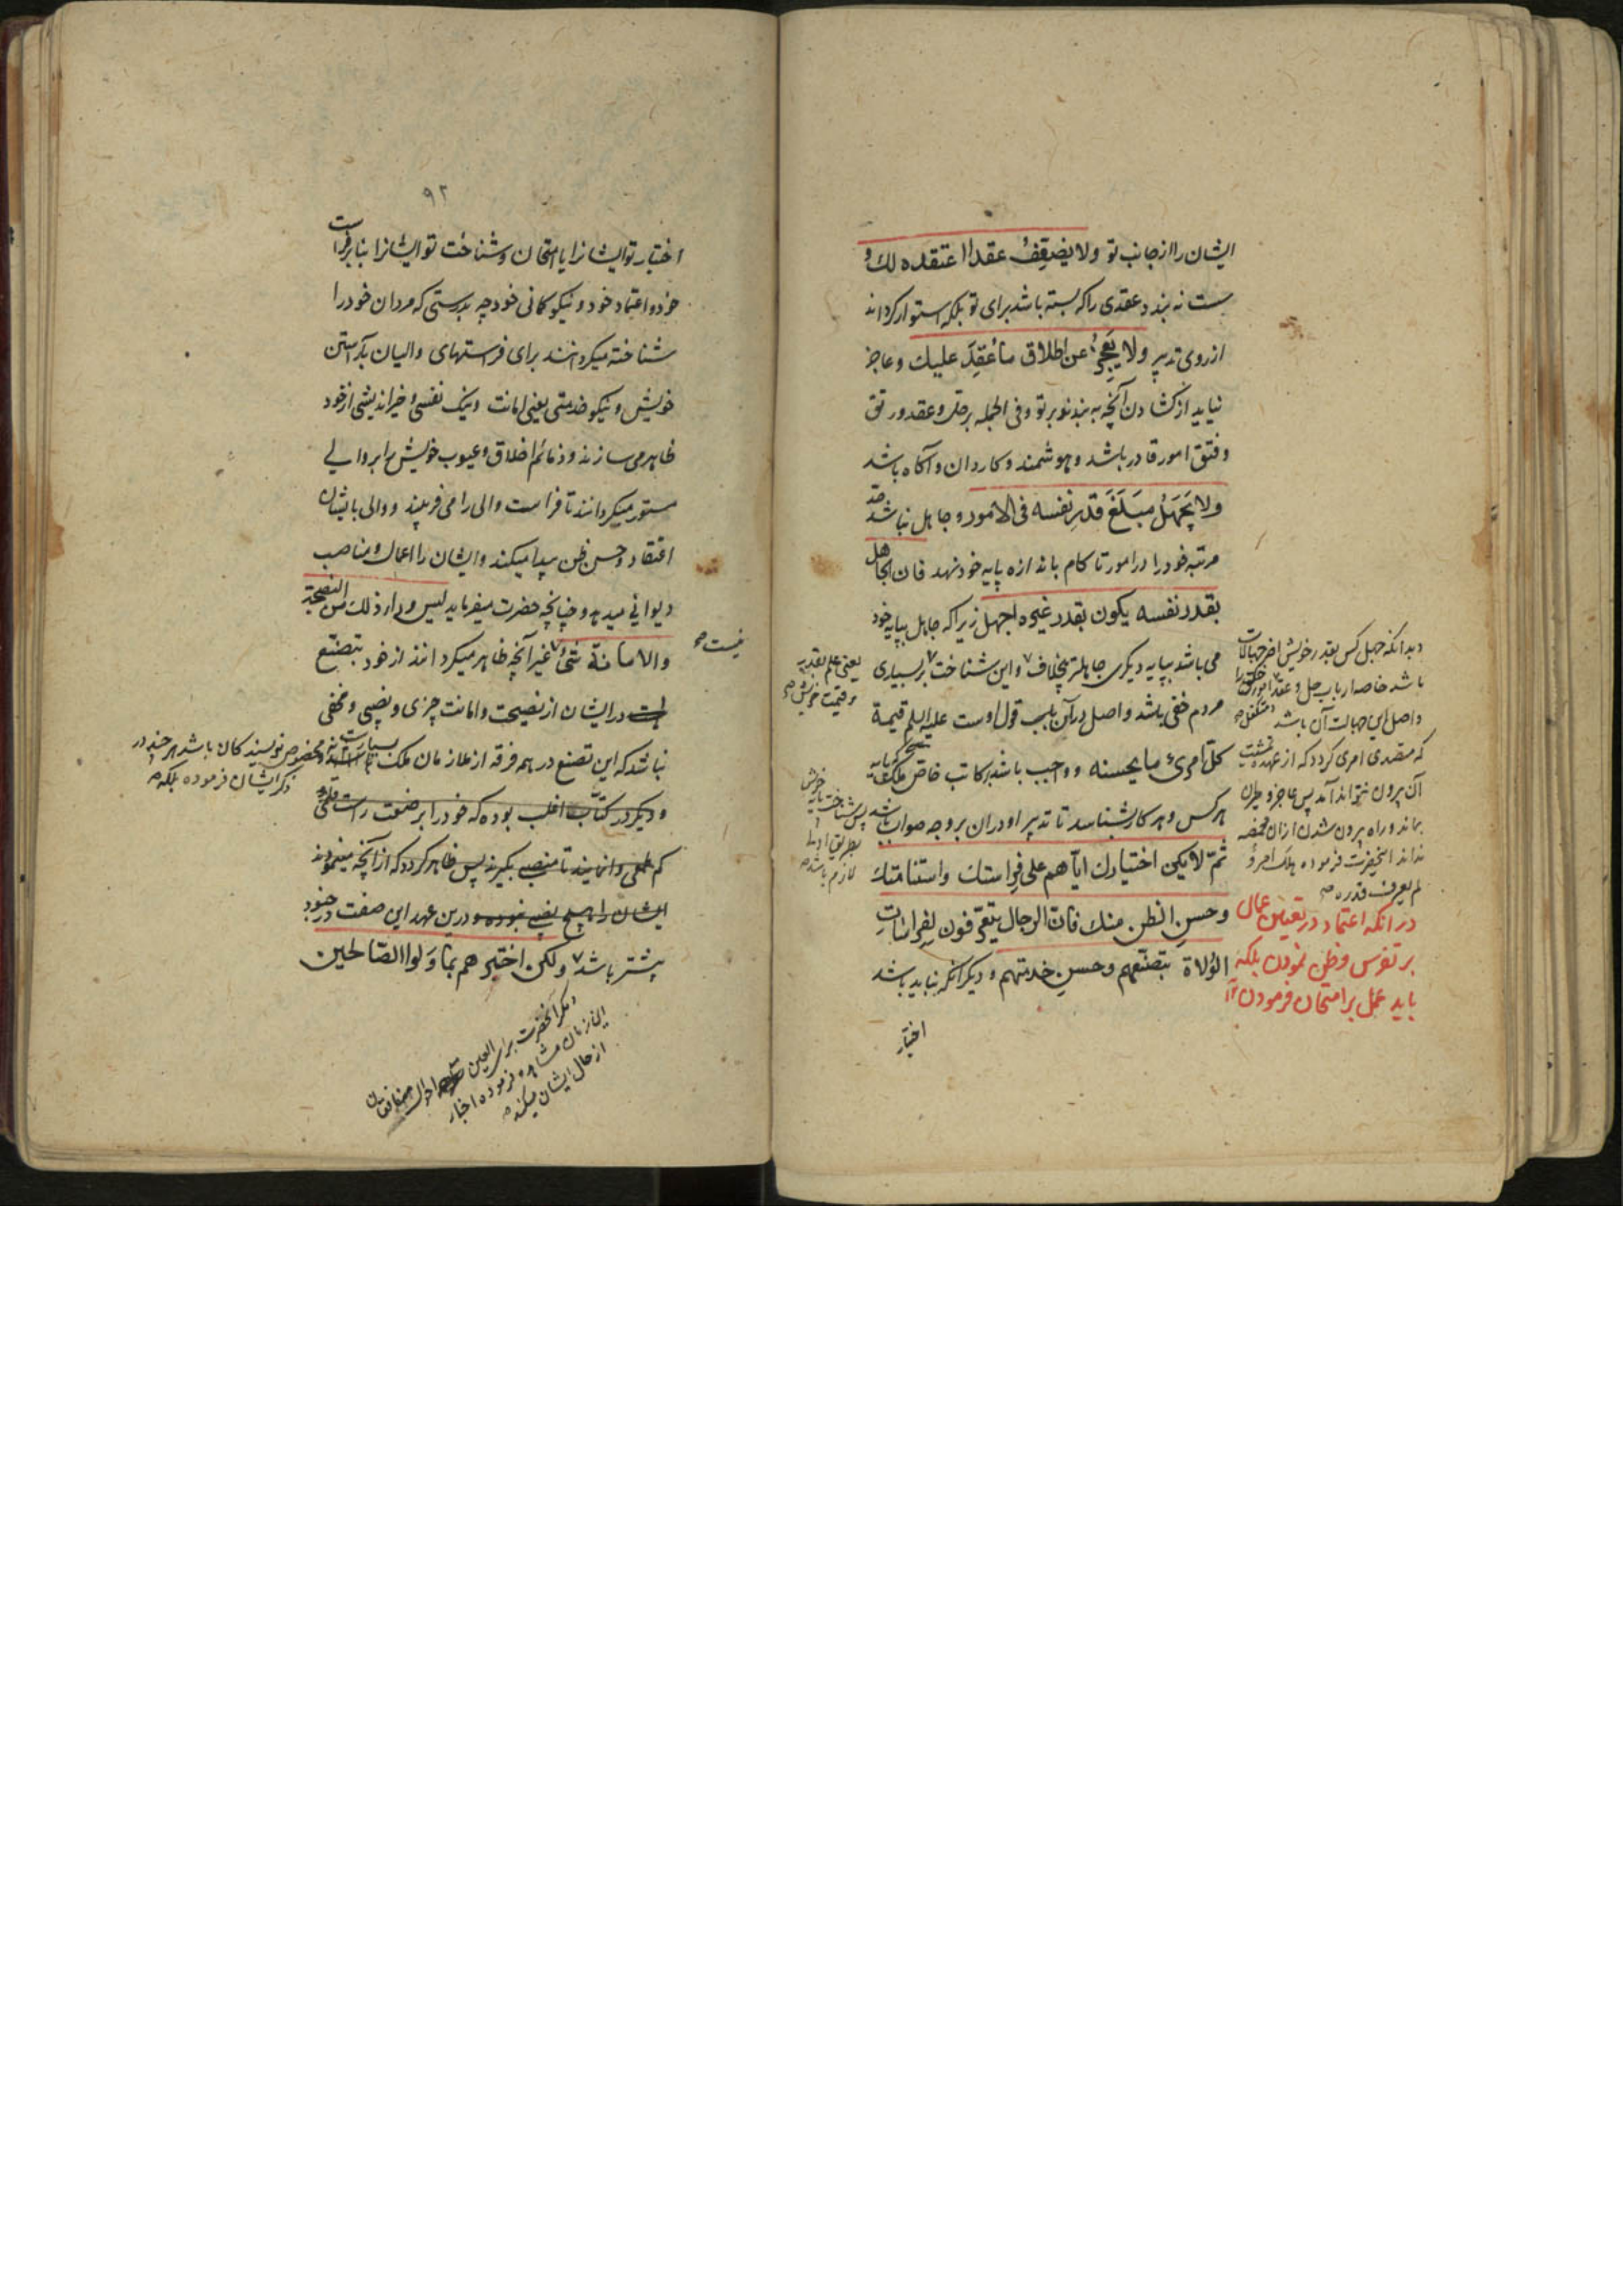 ایشان را از جانب تو ولا یضعف عقدا اعتقده لك و
سست نه بندد عقدی را که بسته باشد برای تو بلکه استوار کرداند
از روی تدبیر ولا یعجز عن اطلاق ما عقد علیك وعاجز
نیاید از کشادن آنچه به بندند بر تو وفی الجمله بر حل وعقد ورتق
وفتق امور قادر باشد وهوشمند وکاردان وآکاه باشد
ولا یجهل مبلغ قدر نفسه فی الامور وجاهل نباشد حد
مرتبه خود را در امور تا کام باندازه پایه خود نهد فان الجاهل
بقدر نفسه یکون بقدر غیره اجهل زیرا که جاهل بپایه خود
می باشد بپایه دیکری جاهلتر بخلاف واین شناخت بر بسیاری
مردم خفی باشد واصل درآن باب قول اوست علیه السلم قیمة
کل امرئ ما یحسنه وواجب باشد بر کاتب خاص ملک که پایه
هر کس وهر کار بشناسد تا تدبیر او دران بر وجه صواب باشد
ثم لا یکن اختیارك ایاهم علی فراستك واستنامتك
وحسن الظن منك فان الرجال یتعرفون لفراسات
الولاة بتصنعهم وحسن خدمتهم ودیکر آنکه نباید باشد
اختیار
وبدانکه جهل کس بقدر خویش اضر جهالات
باشد خاصه ارباب حل وعقد امور خلق را
واصل این جهالت آن باشد
که متصدی امری کردد که از عهده
آن بیرون نتواند آمد پس عاجز وحیران
بماند وراه بیرون شدن ازان مخمصه
نداند آنحضرت فرموده هلك امرؤ
لم یعرف قدره صح
یعنی علم بقدر
وقیمت خویش صح
پس شناخت پایه خویش
بطریق اولی
لازم باشد صح
در آنکه اعتماد در تعیین عمال
بر تفرس وظن نمودن بلکه
باید عمل بر امتحان فرمودن
۹۲
اختیار تو ایشانرا یا امتحان وشناخت تو ایشانرا بنا بر فراست
خود واعتماد خود ونیکو کمانی خود چه بدرستی که مردان خود را
شناخته میکردانند برای فرستهای والیان بآراستن
خویش ونیکو خدمتی یعنی امانت ونیک نفسی وخیر اندیشی از خود
ظاهر می سازند وذمائم اخلاق وعیوب خویش را بر والی
مستور میکردانند تا فراست والی را می فریبند ووالی بایشان
اعتقاد وحسن ظن پیدا میکند وایشان را اعمال ومناصب
دیوانی میدهد وچنانچه حضرت میفرماید لیس وراء ذلك من النصیحة
والامانة شئ غیر آنچه ظاهر میکردانند از خود بتصنع
در ایشان از نصیحت وامانت چیزی ونصیبی ومخفی
نباشد که این تصنع در همه فرقه از ملازمان ملک بسیارست نه مخصوص نویسندکان باشد هر چند در
ذکر ایشان فرموده بلکه صح
ودیکر در کتاب اغلب بوده که خود را بر صفت راست قلمی
کم طمعی وانمایند تا منصب بکیرند پس ظاهر کردد که از آنچه مینمودند
ایشان را هیچ نصیب نبوده ودرین عهد این صفت در جنود
بیشتر باشد ولکن اختبرهم بما ولوا الصالحین
نیست صح
مکر آنحضرت برای العین احوال منافقان
این زمان مشاهده فرموده اخبار
از حال ایشان میکند صح